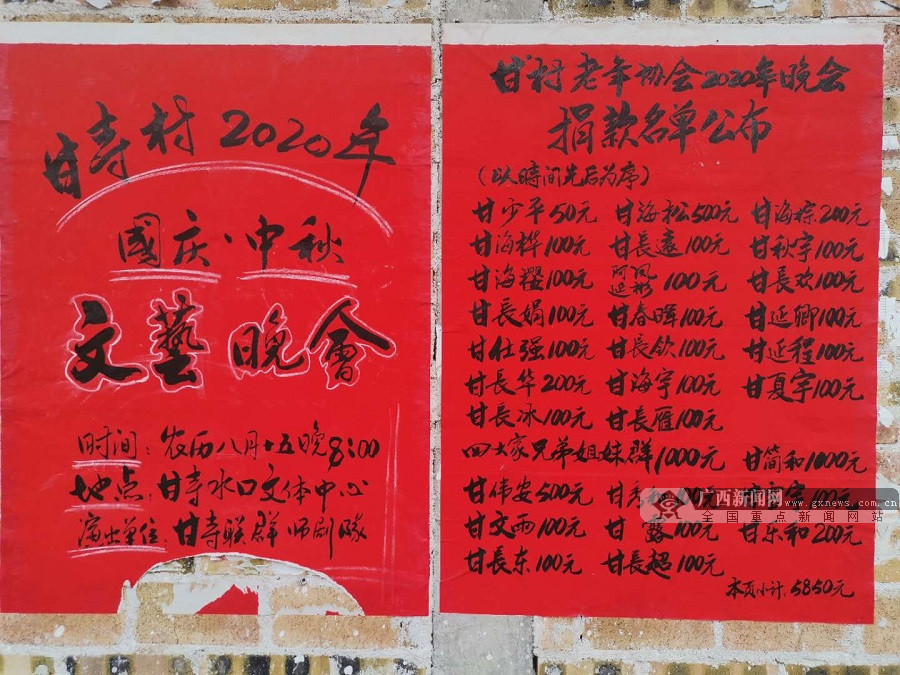 甘寺村2020年
國庆·中秋
文藝晚會
时间：农历八月十五晚8:00
地点：甘寺水口文体中心
演出单位：甘寺联群师剧隊
甘村老年协会2020年晚会
捐款名单公布
(以時间先后为序)
甘少平50元 甘海松500元 甘海棕200元
甘海桦100元 甘長遠100元 甘秋宇100元
甘海樱100元 阿凤延彬100元 甘長欢100元
甘長娟100元 甘春晖100元 甘延卿100元
甘仕强100元 甘長钦100元 甘延程100元
甘長华200元 甘海宇100元 甘夏宇100元
甘長冰100元 甘長雁100元
四大家兄弟姐妹群1000元 甘简和1000元
甘伟安500元 甘 100元 100元
甘文雨100元 甘露100元 甘乐和200元
甘長东100元 甘長超100元
本页小计:5850元
广西新闻网
www.gxnews.com.cn
全国重点新闻网站